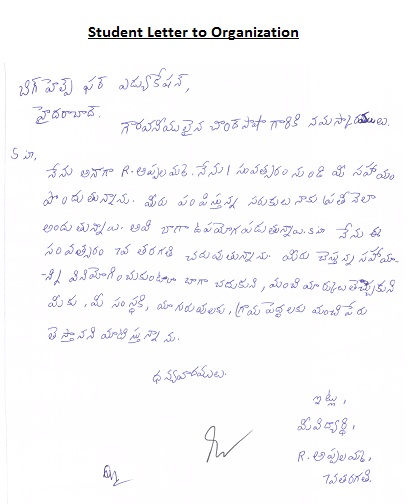 Student Letter to Organization
బిగ్ హెల్ప్ ఫర్ ఎడ్యుకేషన్,
హైదరాబాద్.
గౌరవనీయులైన చాంద్ పాషా గారికి నమస్కారములు.
సా,
నేను అనగా R. అప్పలమ్మ. నేను 1 సంవత్సరం నుండి మీ సహాయం
పొందుతున్నాను. మీరు పంపిస్తున్న సరుకులు నాకు ప్రతి నెలా
అందుతున్నాయి. అవి బాగా ఉపయోగపడుతున్నాయి. సా నేను ఈ
సంవత్సరం 7వ తరగతి చదువుతున్నాను. మీరు చేస్తున్న సహాయా
-న్ని వినియోగించుకుంటూ బాగా చదుకుని, మంచి మార్కులు తెచ్చుకుని
మీకు, మీ సంస్థకి, మా గురువులకు, గ్రామ పెద్దలకు మంచి పేరు
తెస్తానని మాటిస్తున్నాను.
ధన్యవాదములు.
ఇట్లు,
మీ విద్యార్థి,
R. అప్పలమ్మ,
7వ తరగతి.